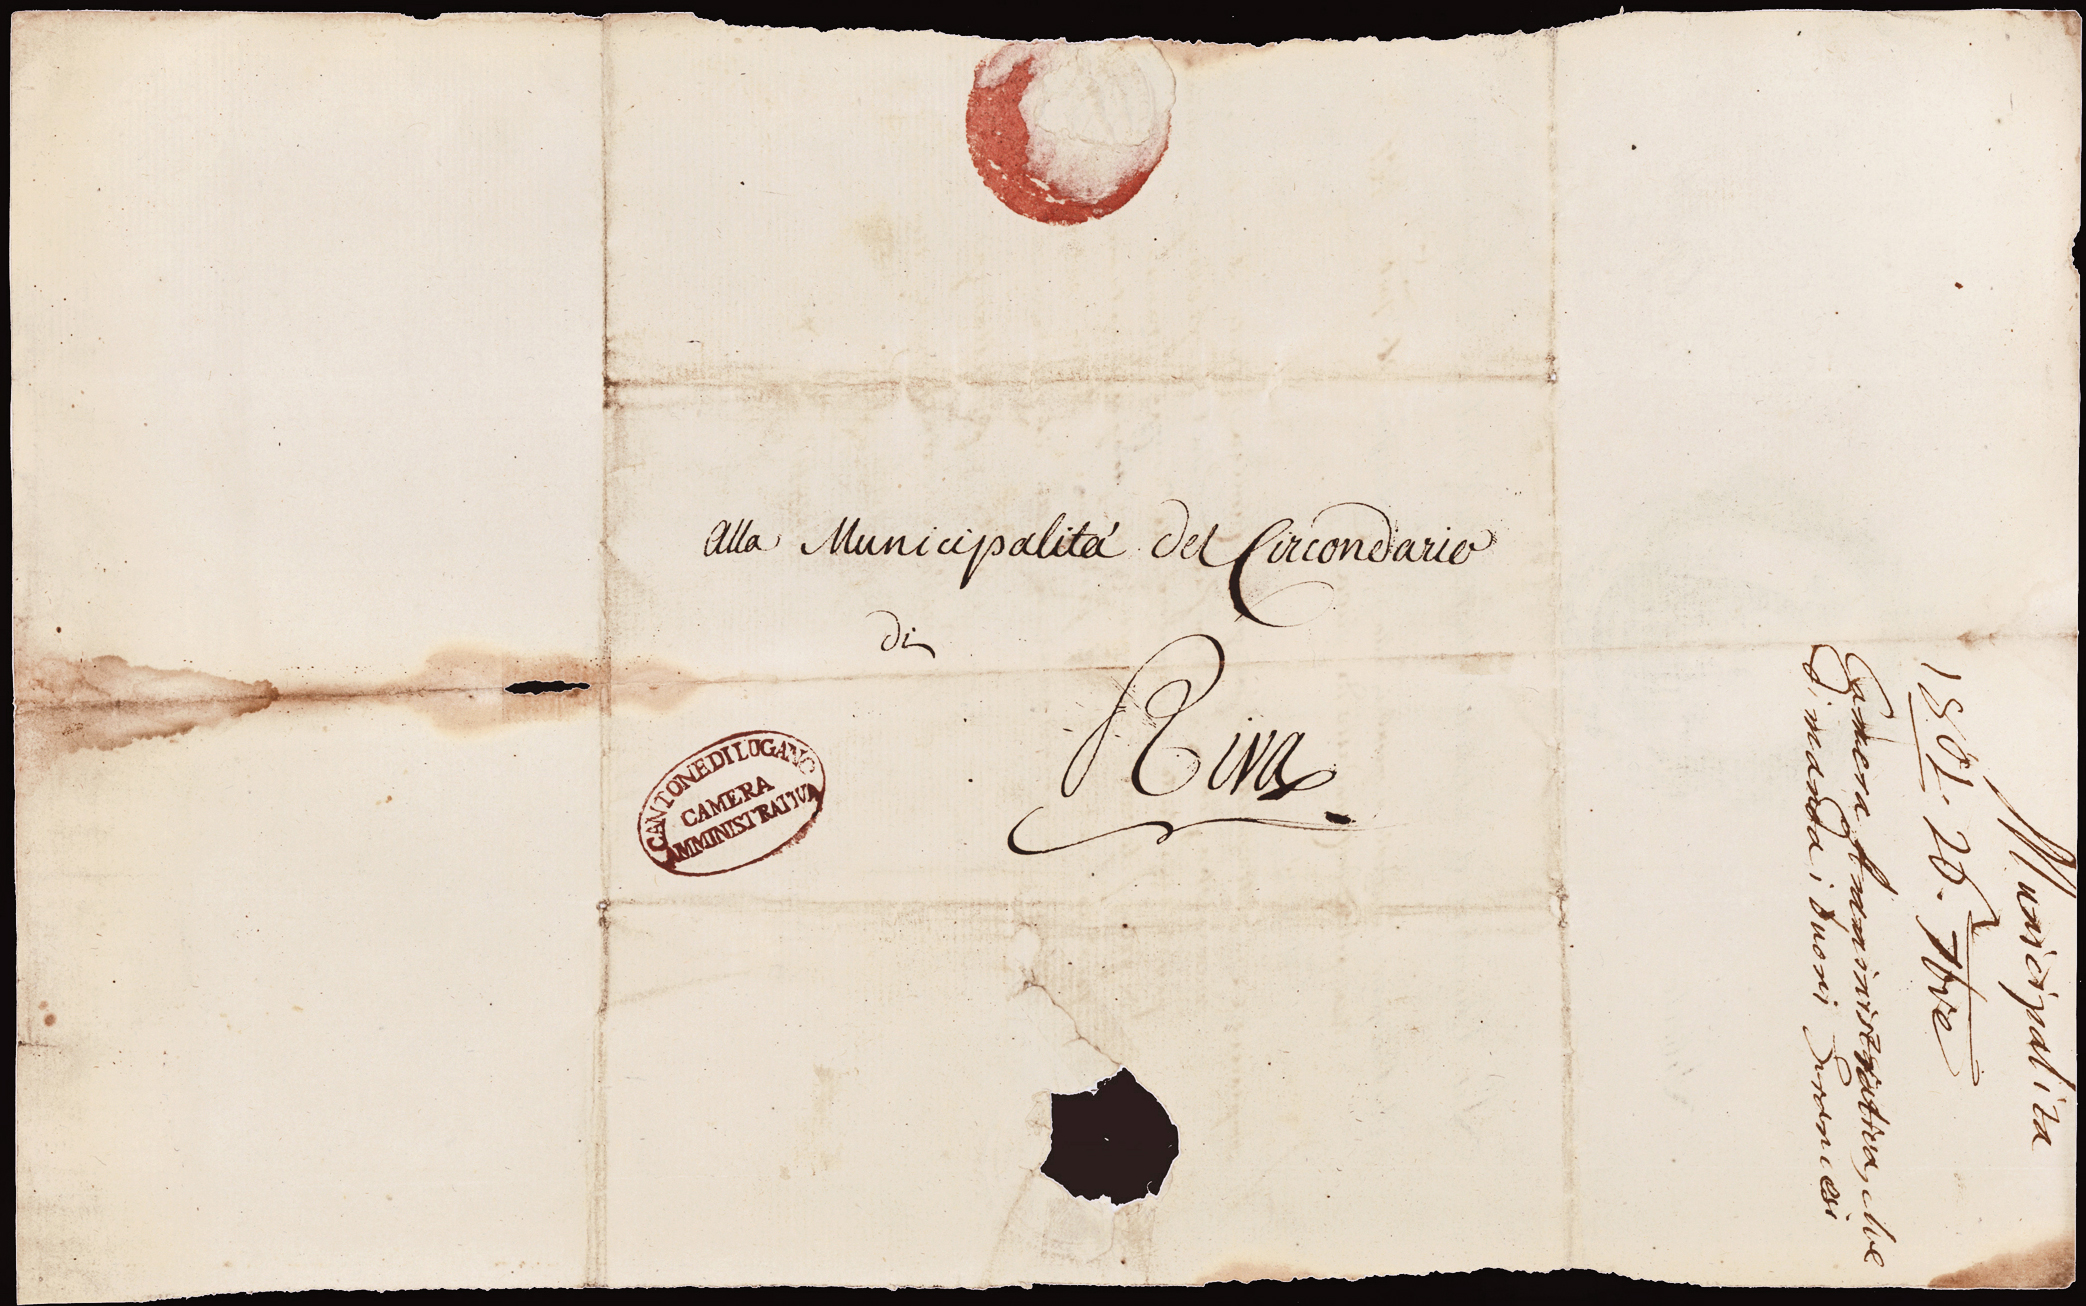 Alla Municipalitá del Circondario
di
Riva
CANTONE DI LUGANO
CAMERA
AMMINISTRATIVA
Municipalità
1801. 26. 7bre
Camera Amministrativa, che
dimanda i buoni Francesi